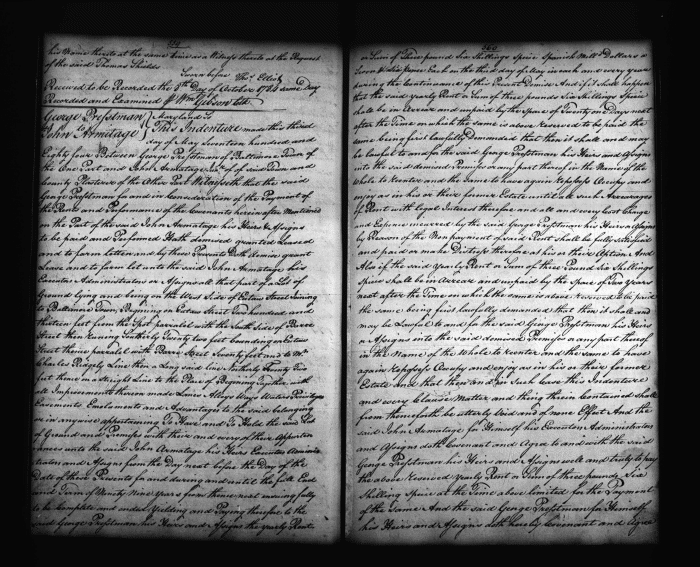 359
his Name thereto at the same time as a Witness thereto at the Request
of the said Thomas Shields
Sworn before Thos. Elliott
Received to be Recorded the 5th Day of October 1784 same Day
Recorded and Examined Wm Gibson Clk
George Presstman Maryland Ss
to
John Armitage This Indenture made this third
day of May Seventeen hundred and
Eighty four Between George Presstman of Baltimore Town of
the One Part and John Armatage of said Town and
County Plasterer of the Other Part Witnesseth that the said
George Presstman for and in Consideration of the Payment of
the Rents and Performance of the Covenants herein after Mentioned
on the Part of the said John Armatage his Heirs & Assigns
to be paid and Performed Hath demised granted leased
and to farm letten and by these Presents Doth demise grant
Lease and to farm let unto the said John Armatage his
Executors Administrators or Assigns all that part of a Lot of
Ground lying and being on the West Side of Eutaw Street
to Baltimore Town Begining on Eutaw Street Two hundred and
thirteen feet from the Spot parralel with the South Side of Barre
Street then runing Southerly Twenty two feet bounding on Eutaw
Street thence parralel with Barre Street Seventy feet and to Mr
Charles Ridgely Line then a Long said line Northerly Twenty Two
feet thence in a Straight Line to the Place of Begining Together with
all Improvements therein made Lanes Alleys Ways Waters Priviledges
Easements Emoluments and Advantages to the said belonging
or in anywise appertaining To Have and To Hold the said Lot
of Ground and Premises with their and every of their Apperten
nances unto the said John Armatage his Heirs Executors Adminis
trators and Assigns from the Day next before the Day of the
Date of these Presents for and during and until the full End
and Term of Ninety Nine Years from thence next ensuing fully
to be Complete and ended Yielding and Paying therefor to the
said George Presstman his Heirs and Assigns the yearly Rent
360
or Sum of Three pound Six Shillings Specie Spanish Mill'd Dollars a
Seven & Six pence Each on the third day of May in each and every year
during the Continuance of this Present Demise And if it shall happen
that the said Yearly Rent or Sum of three pounds Six Shillings Specie
shall be in Arrear and unpaid by the Space of Twenty on Days next
after the Time on which the same is above reserved to be paid the
same being first lawfully Demanded that then it shall and may
be lawful to and for the said George Presstman his Heirs and Assigns
into the said demised Premises or any part thereof in the Name of the
Whole to reenter and the same to have again repossess Occupy and
enjoy as in his or their former Estate until all such Arrearages
of Rent with legal Interest therefor and all and every Cost Charge
and Expence incurred by the said George Presstman his Heirs or Assigns
by Reason of the Nonpayment of said Rent shall be fully satisfied
and paid or make Distress therefor at his or their Option And
Also if the said Yearly Rent or Sum of three Pound Six Shillings
Specie shall be in Arrear and unpaid by the Space of Two Years
next after the Time on which the same is above reserved to be paid
the same being first lawfully demanded that then it shall and
may be Lawful to and for the said George Presstman his Heirs
or Assigns into the said demised Premises or any part thereof
in the Name of the Whole to reenter and the same to have
again repossess Occupy and enjoy as in his or their former
Estate And that then and in such Case this Indenture
and every Clause Matter and thing therein Contained shall
from thenceforth be utterly Void and of none Effect And the
said John Armatage for Himself his Executors Administrators
and Assigns doth Covenant and Agree to and with the said
George Presstman his Heirs and Assigns well and truly to pay
the above reserved yearly Rent or Sum of three pounds Six
Shilling Specie at the Time above limited for the Payment
of the Same And the said George Presstman for Himself
his Heirs and Assigns doth hereby Covenant and Agree